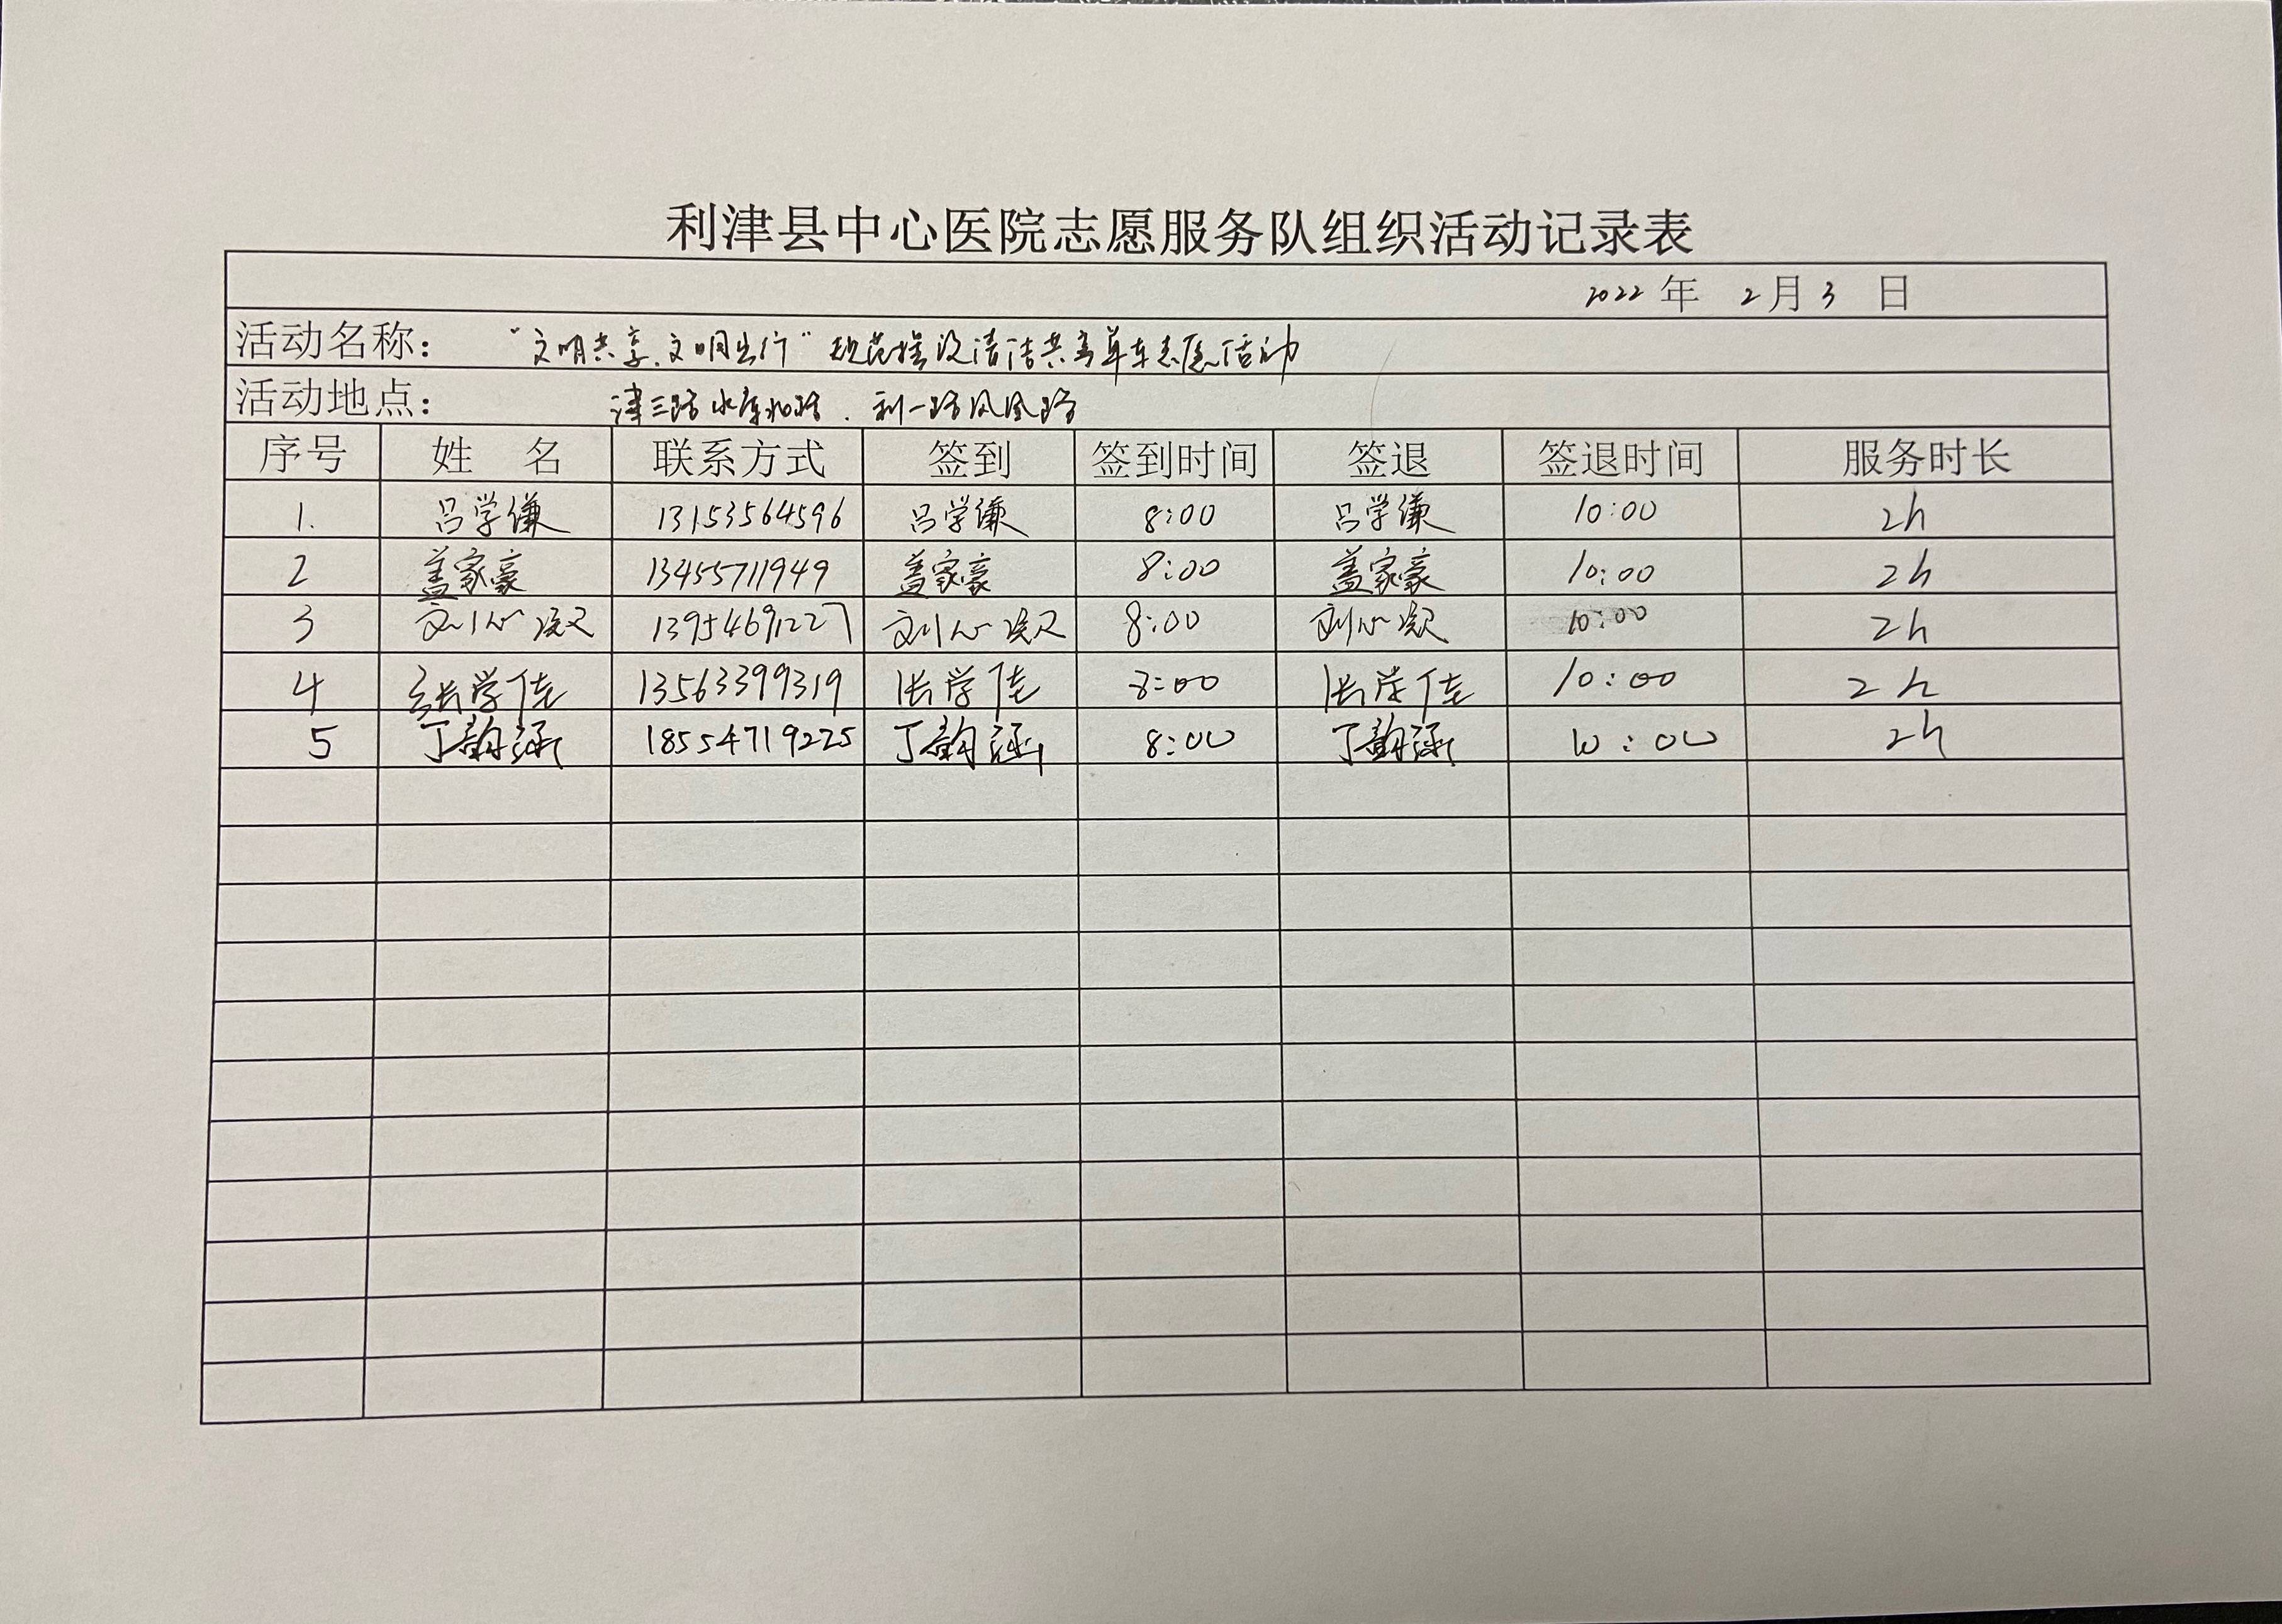 利津县中心医院志愿服务队组织活动记录表
2022 年 2 月 3 日
活动名称： “文明共享、文明出行”规范摆放清洁共享单车志愿活动
活动地点： 津三路 利一路凤凰路
序号 姓 名 联系方式 签到 签到时间 签退 签退时间 服务时长
1. 吕学谦 13153564596 吕学谦 8:00 吕学谦 10:00 2h
2 盖家豪 13455711949 盖家豪 8:00 盖家豪 10:00 2h
3 刘心 13954691227 刘心 8:00 刘心 10:00 2h
4 张学佳 13563399319 张学佳 8:00 张学佳 10:00 2h
5 丁韵涵 18554719225 丁韵涵 8:00 丁韵涵 10:00 2h